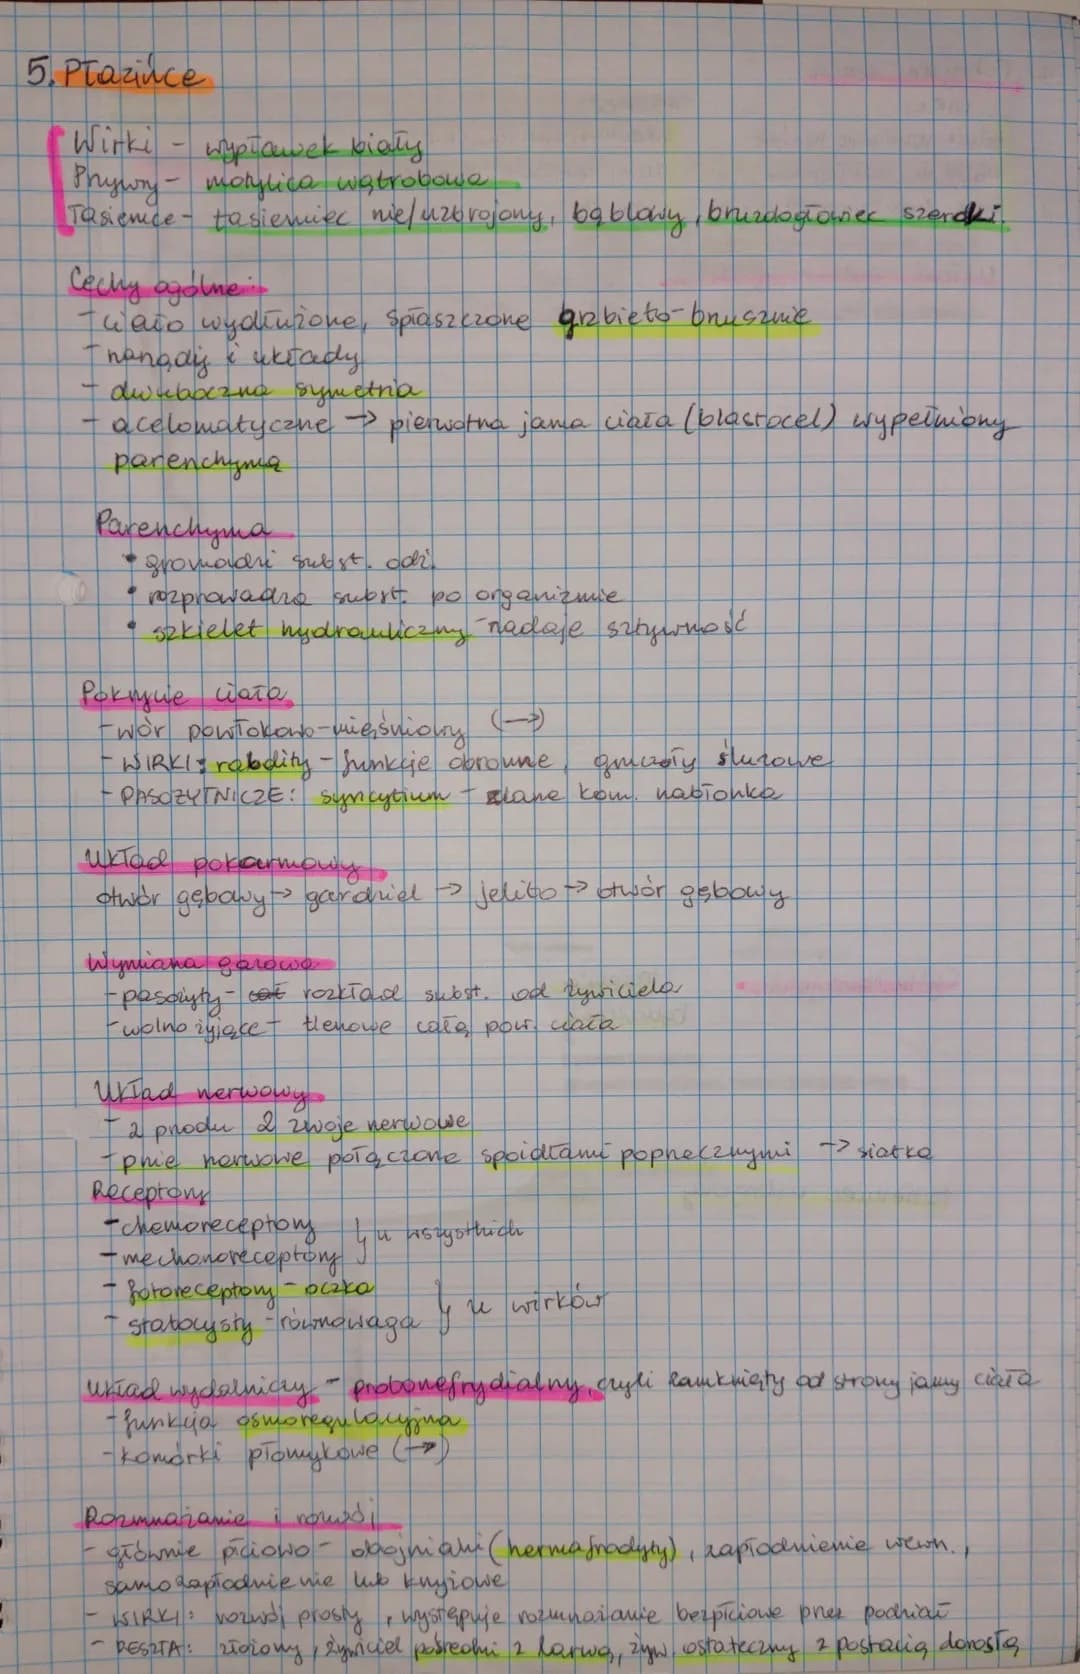 5. Płazińce
Wirki - wypławek biały
Przywry - motylica wątrobowa
Tasiemce - tasiemiec nie/uzbrojony, bąblowy, bruzdogłowiec szeroki.
Cechy ogólne:
- ciało wydłużone, spłaszczone grzbieto-brzusznie
- narządy i układy
- dwuboczna symetria
- acelomatyczne → pierwotna jama ciała (blastocel) wypełniony
parenchymą
Parenchyma
• gromadzi subst. odż.
• rozprowadza subst. po organizmie
• szkielet hydrauliczny - nadaje sztywność
Pokrycie ciała
- wór powłokowo-mięśniowy (→)
- WIRKI: rabdity - funkcje obronne, gruczoły śluzowe
- PASOŻYTNICZE: syncytium - zlane kom. nabłonka
Układ pokarmowy
otwór gębowy → gardziel → jelito → otwór gębowy
Wymiana gazowa
- pasożyty - rozkład subst. od żywiciela
- wolno żyjące - tlenowe całą pow. ciała
Układ nerwowy
- z przodu 2 zwoje nerwowe
- pnie nerwowe połączone spoidłami poprzecznymi → siatka
Receptory
- chemoreceptory } u wszystkich
- mechanoreceptory
- fotoreceptory - oczka } u wirków
- statocysty - równowaga
Układ wydalniczy - protonefrydialny, czyli zamknięty od strony jamy ciała
- funkcja osmoregulacyjna
- komórki płomykowe (→)
Rozmnażanie i rozwój
- głównie płciowo - obojniaki (hermafrodyty), zapłodnienie wewn.,
samozapłodnienie lub krzyżowe
- WIRKI: rozwój prosty, występuje rozmnażanie bezpłciowe przez podział
- RESZTA: złożony, żywiciel pośredni z larwą, żyw. ostateczny z postacią dorosłą